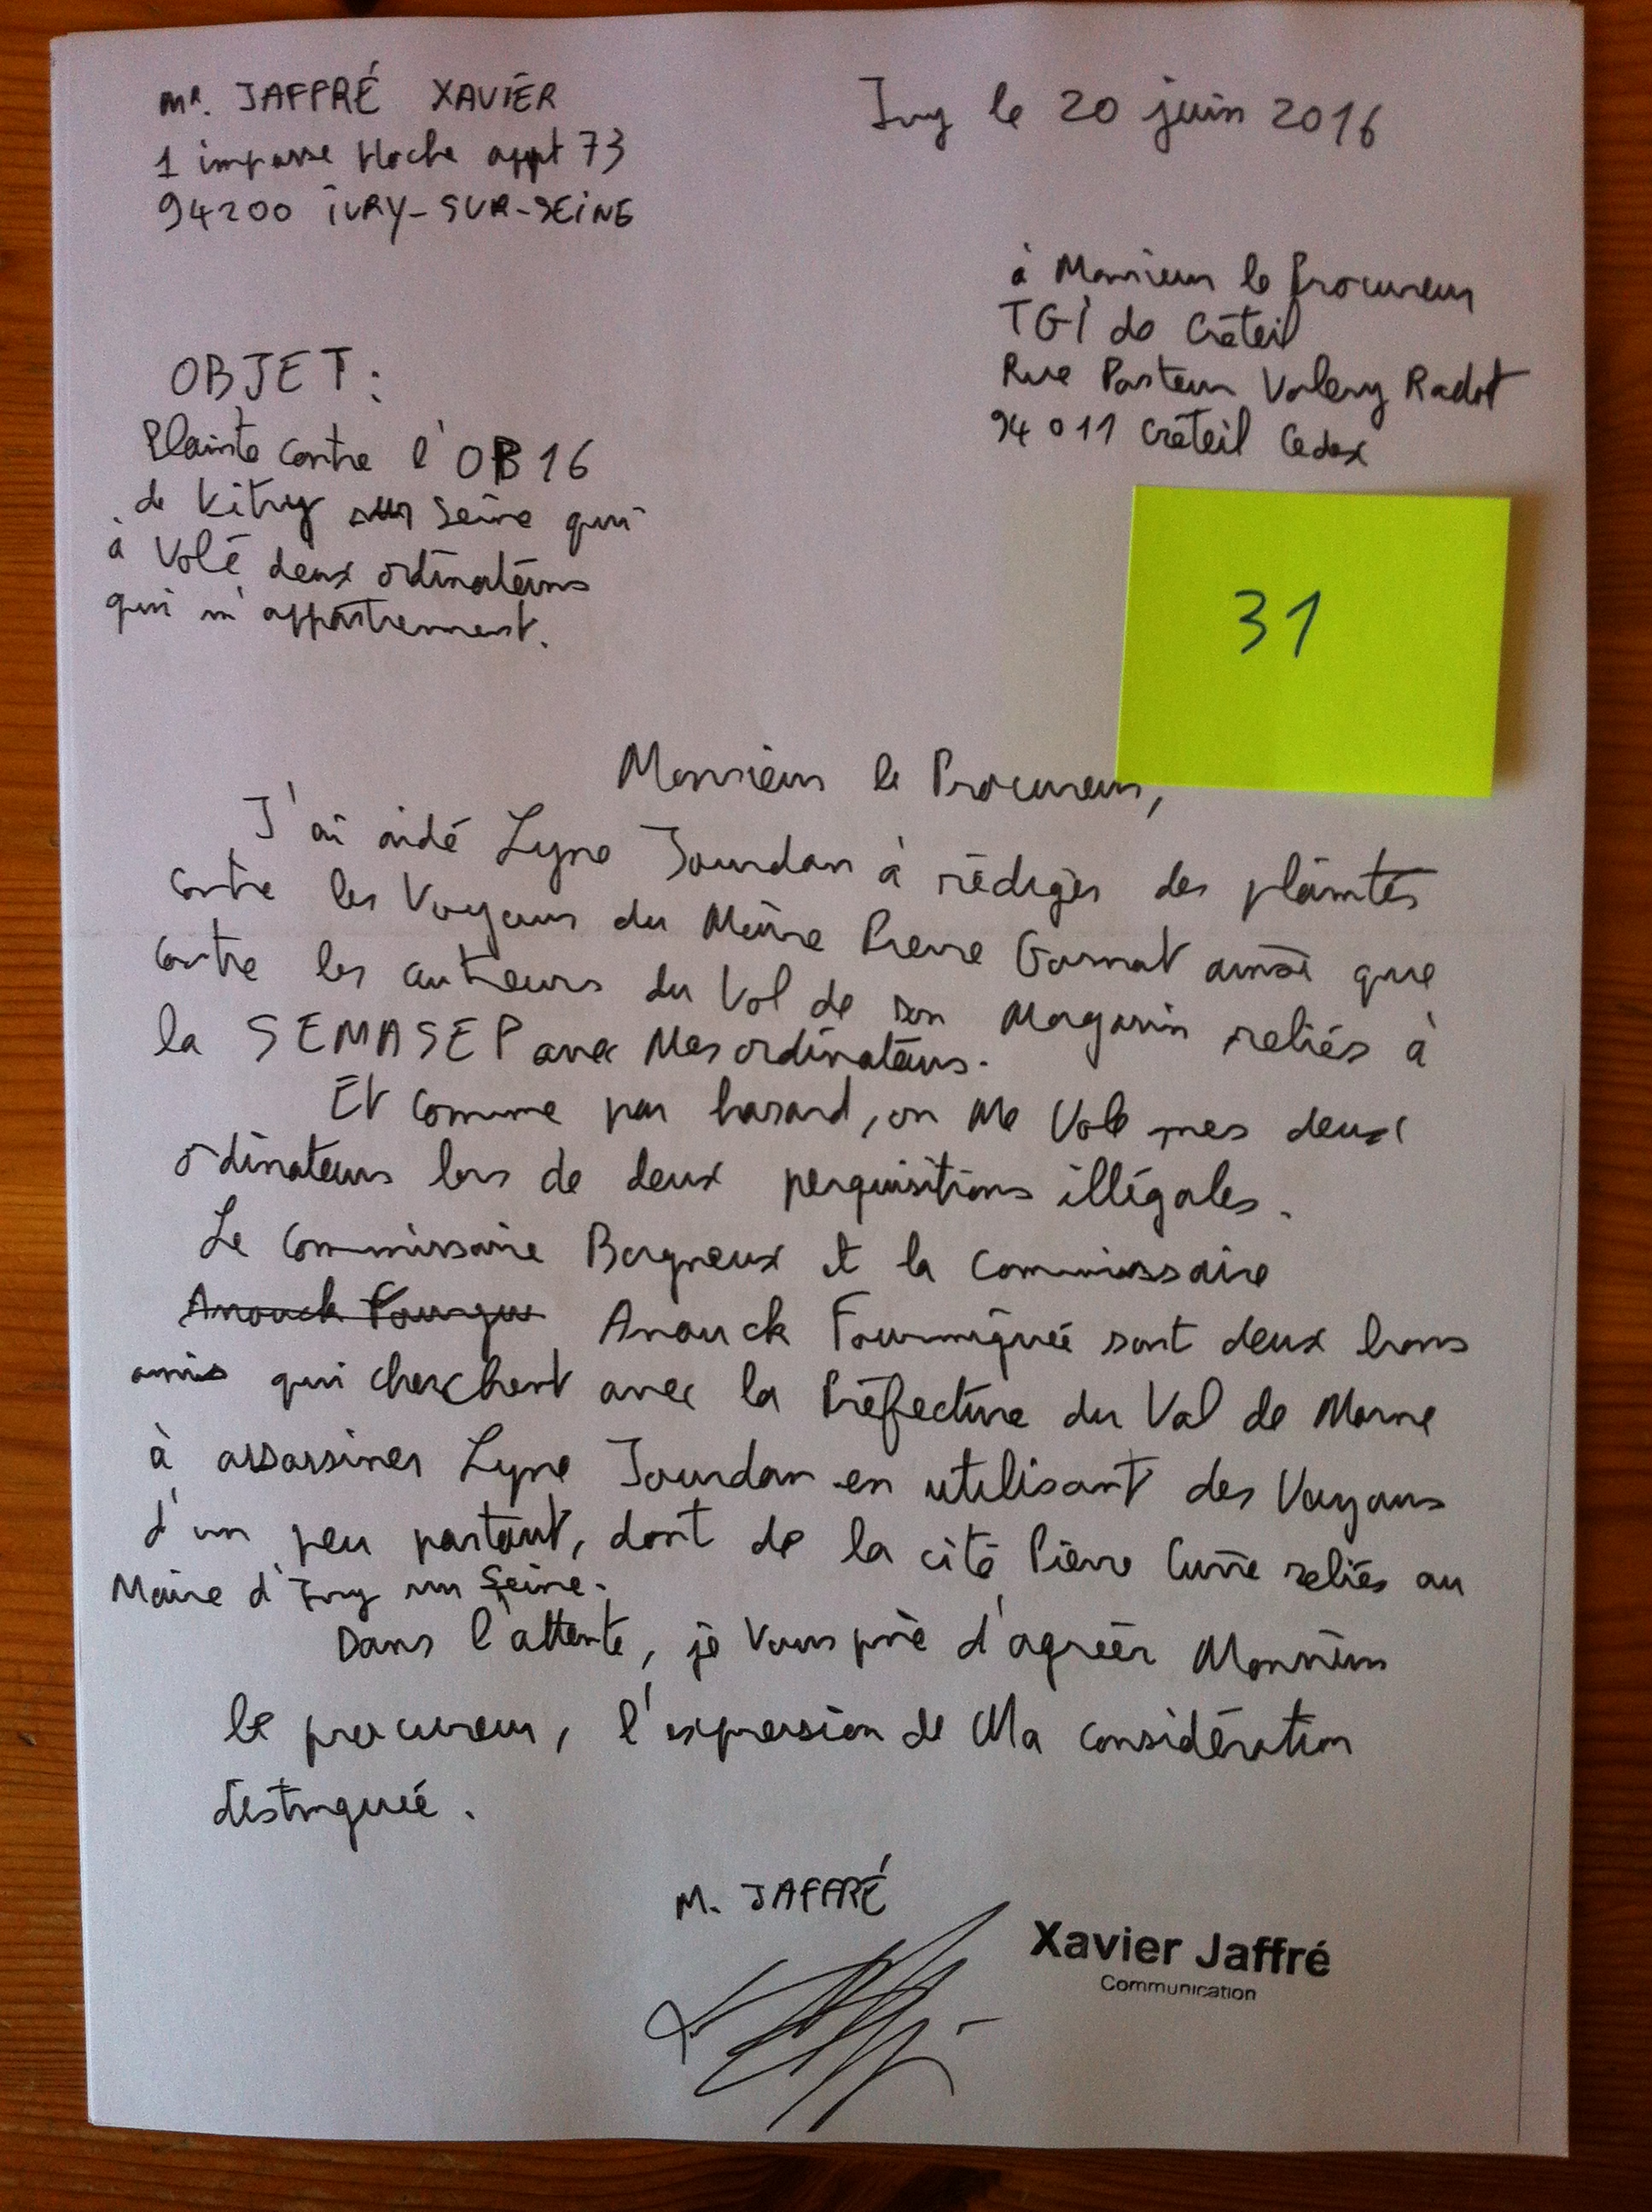 Mr. JAFFRÉ XAVIER
1 impasse Hoche appt 73
94200 IVRY-SUR-SEINE
Ivry le 20 juin 2016
à Monsieur le Procureur
TGI de Créteil
Rue Pasteur Valery Radot
94011 Créteil Cedex
OBJET :
Plainte contre l'OPJ 16
de Vitry sur Seine qui
à volé deux ordinateurs
qui m'appartiennent.
31
Monsieur le Procureur,
J'ai aidé Lyne Jourdan à rédiger des plaintes
contre les Voyous du Maire Pierre Gosnat ainsi que
contre les auteurs du Vol de son Magasin reliés à
la SEMASEP avec Mes ordinateurs.
Et comme par hasard, on Me Vole mes deux
ordinateurs lors de deux perquisitions illégales.
Le Commissaire Bagneux et la Commissaire
Anouck Fourmigué sont deux bons
amis qui cherchent avec la Préfecture du Val de Marne
à assassiner Lyne Jourdan en utilisant des Voyous
d'un peu partout, dont de la cité Pierre Curie reliés au
Maire d'Ivry sur Seine.
Dans l'attente, je Vous prie d'agréer Monsieur
le procureur, l'expression de Ma considération
distinguée.
M. JAFFRÉ
Xavier Jaffré
Communication